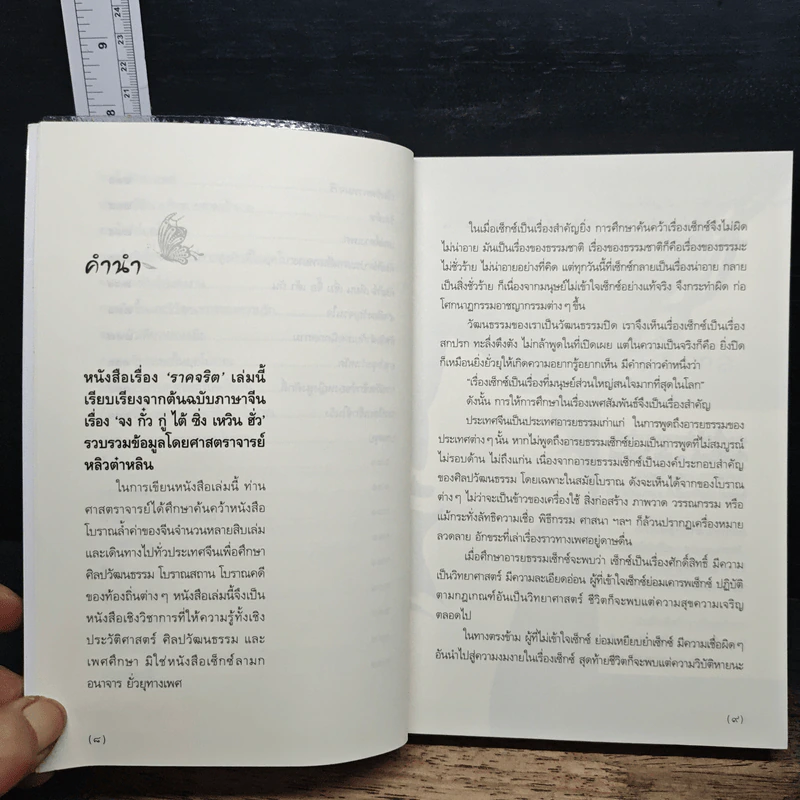 คำนำ
หนังสือเรื่อง ‘ราคจริต’ เล่มนี้
เรียบเรียงจากต้นฉบับภาษาจีน
เรื่อง ‘จง กั๋ว กู่ ไต้ ซิ่ง เหวิน ฮั่ว’
รวบรวมข้อมูลโดยศาสตราจารย์
หลิวต๋าหลิน
ในการเขียนหนังสือเล่มนี้ ท่าน
ศาสตราจารย์ได้ศึกษาค้นคว้าหนังสือ
โบราณล้ำค่าของจีนจำนวนหลายสิบเล่ม
และเดินทางไปทั่วประเทศจีนเพื่อศึกษา
ศิลปวัฒนธรรม โบราณสถาน โบราณคดี
ของท้องถิ่นต่างๆ หนังสือเล่มนี้จึงเป็น
หนังสือเชิงวิชาการที่ให้ความรู้ทั้งเชิง
ประวัติศาสตร์ ศิลปวัฒนธรรม และ
เพศศึกษา มิใช่หนังสือเซ็กซ์ลามก
อนาจาร ยั่วยุทางเพศ
(๘)
ในเมื่อเซ็กซ์เป็นเรื่องสำคัญยิ่ง การศึกษาค้นคว้าเรื่องเซ็กซ์จึงไม่ผิด
ไม่น่าอาย มันเป็นเรื่องของธรรมชาติ เรื่องของธรรมชาติก็คือเรื่องของธรรมะ
ไม่ชั่วร้าย ไม่น่าอายอย่างที่คิด แต่ทุกวันนี้ที่เซ็กซ์กลายเป็นเรื่องน่าอาย กลาย
เป็นสิ่งชั่วร้าย ก็เนื่องจากมนุษย์ไม่เข้าใจเซ็กซ์อย่างแท้จริง จึงกระทำผิด ก่อ
โศกนาฏกรรมอาชญากรรมต่างๆ ขึ้น
วัฒนธรรมของเราเป็นวัฒนธรรมปิด เราจึงเห็นเรื่องเซ็กซ์เป็นเรื่อง
สกปรก ทะลึ่งตึงตัง ไม่กล้าพูดในที่เปิดเผย แต่ในความเป็นจริงก็คือ ยิ่งปิด
ก็เหมือนยิ่งยั่วยุให้เกิดความอยากรู้อยากเห็น มีคำกล่าวคำหนึ่งว่า
“เรื่องเซ็กซ์เป็นเรื่องที่มนุษย์ส่วนใหญ่สนใจมากที่สุดในโลก”
ดังนั้น การให้การศึกษาในเรื่องเพศสัมพันธ์จึงเป็นเรื่องสำคัญ
ประเทศจีนเป็นประเทศอารยธรรมเก่าแก่ ในการพูดถึงอารยธรรมของ
ประเทศต่างๆ นั้น หากไม่พูดถึงอารยธรรมเซ็กซ์ย่อมเป็นการพูดที่ไม่สมบูรณ์
ไม่รอบด้าน ไม่ถึงแก่น เนื่องจากอารยธรรมเซ็กซ์เป็นองค์ประกอบสำคัญ
ของศิลปวัฒนธรรม โดยเฉพาะในสมัยโบราณ ดังจะเห็นได้จากของโบราณ
ต่างๆ ไม่ว่าจะเป็นข้าวของเครื่องใช้ สิ่งก่อสร้าง ภาพวาด วรรณกรรม หรือ
แม้กระทั่งลัทธิความเชื่อ พิธีกรรม ศาสนา ฯลฯ ก็ล้วนปรากฏเครื่องหมาย
ลวดลาย อักขระที่เล่าเรื่องราวทางเพศอยู่ดาษดื่น
เมื่อศึกษาอารยธรรมเซ็กซ์จะพบว่า เซ็กซ์เป็นเรื่องศักดิ์สิทธิ์ มีความ
เป็นวิทยาศาสตร์ มีความละเอียดอ่อน ผู้ที่เข้าใจเซ็กซ์ย่อมเคารพเซ็กซ์ ปฏิบัติ
ตามกฎเกณฑ์อันเป็นวิทยาศาสตร์ ชีวิตก็จะพบแต่ความสุขความเจริญ
ตลอดไป
ในทางตรงข้าม ผู้ที่ไม่เข้าใจเซ็กซ์ ย่อมเหยียบย่ำเซ็กซ์ มีความเชื่อผิดๆ
อันนำไปสู่ความงมงายในเรื่องเซ็กซ์ สุดท้ายชีวิตก็จะพบแต่ความวิบัติหายนะ
(๙)
24
23
22
21
9
8